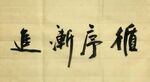 循序漸進